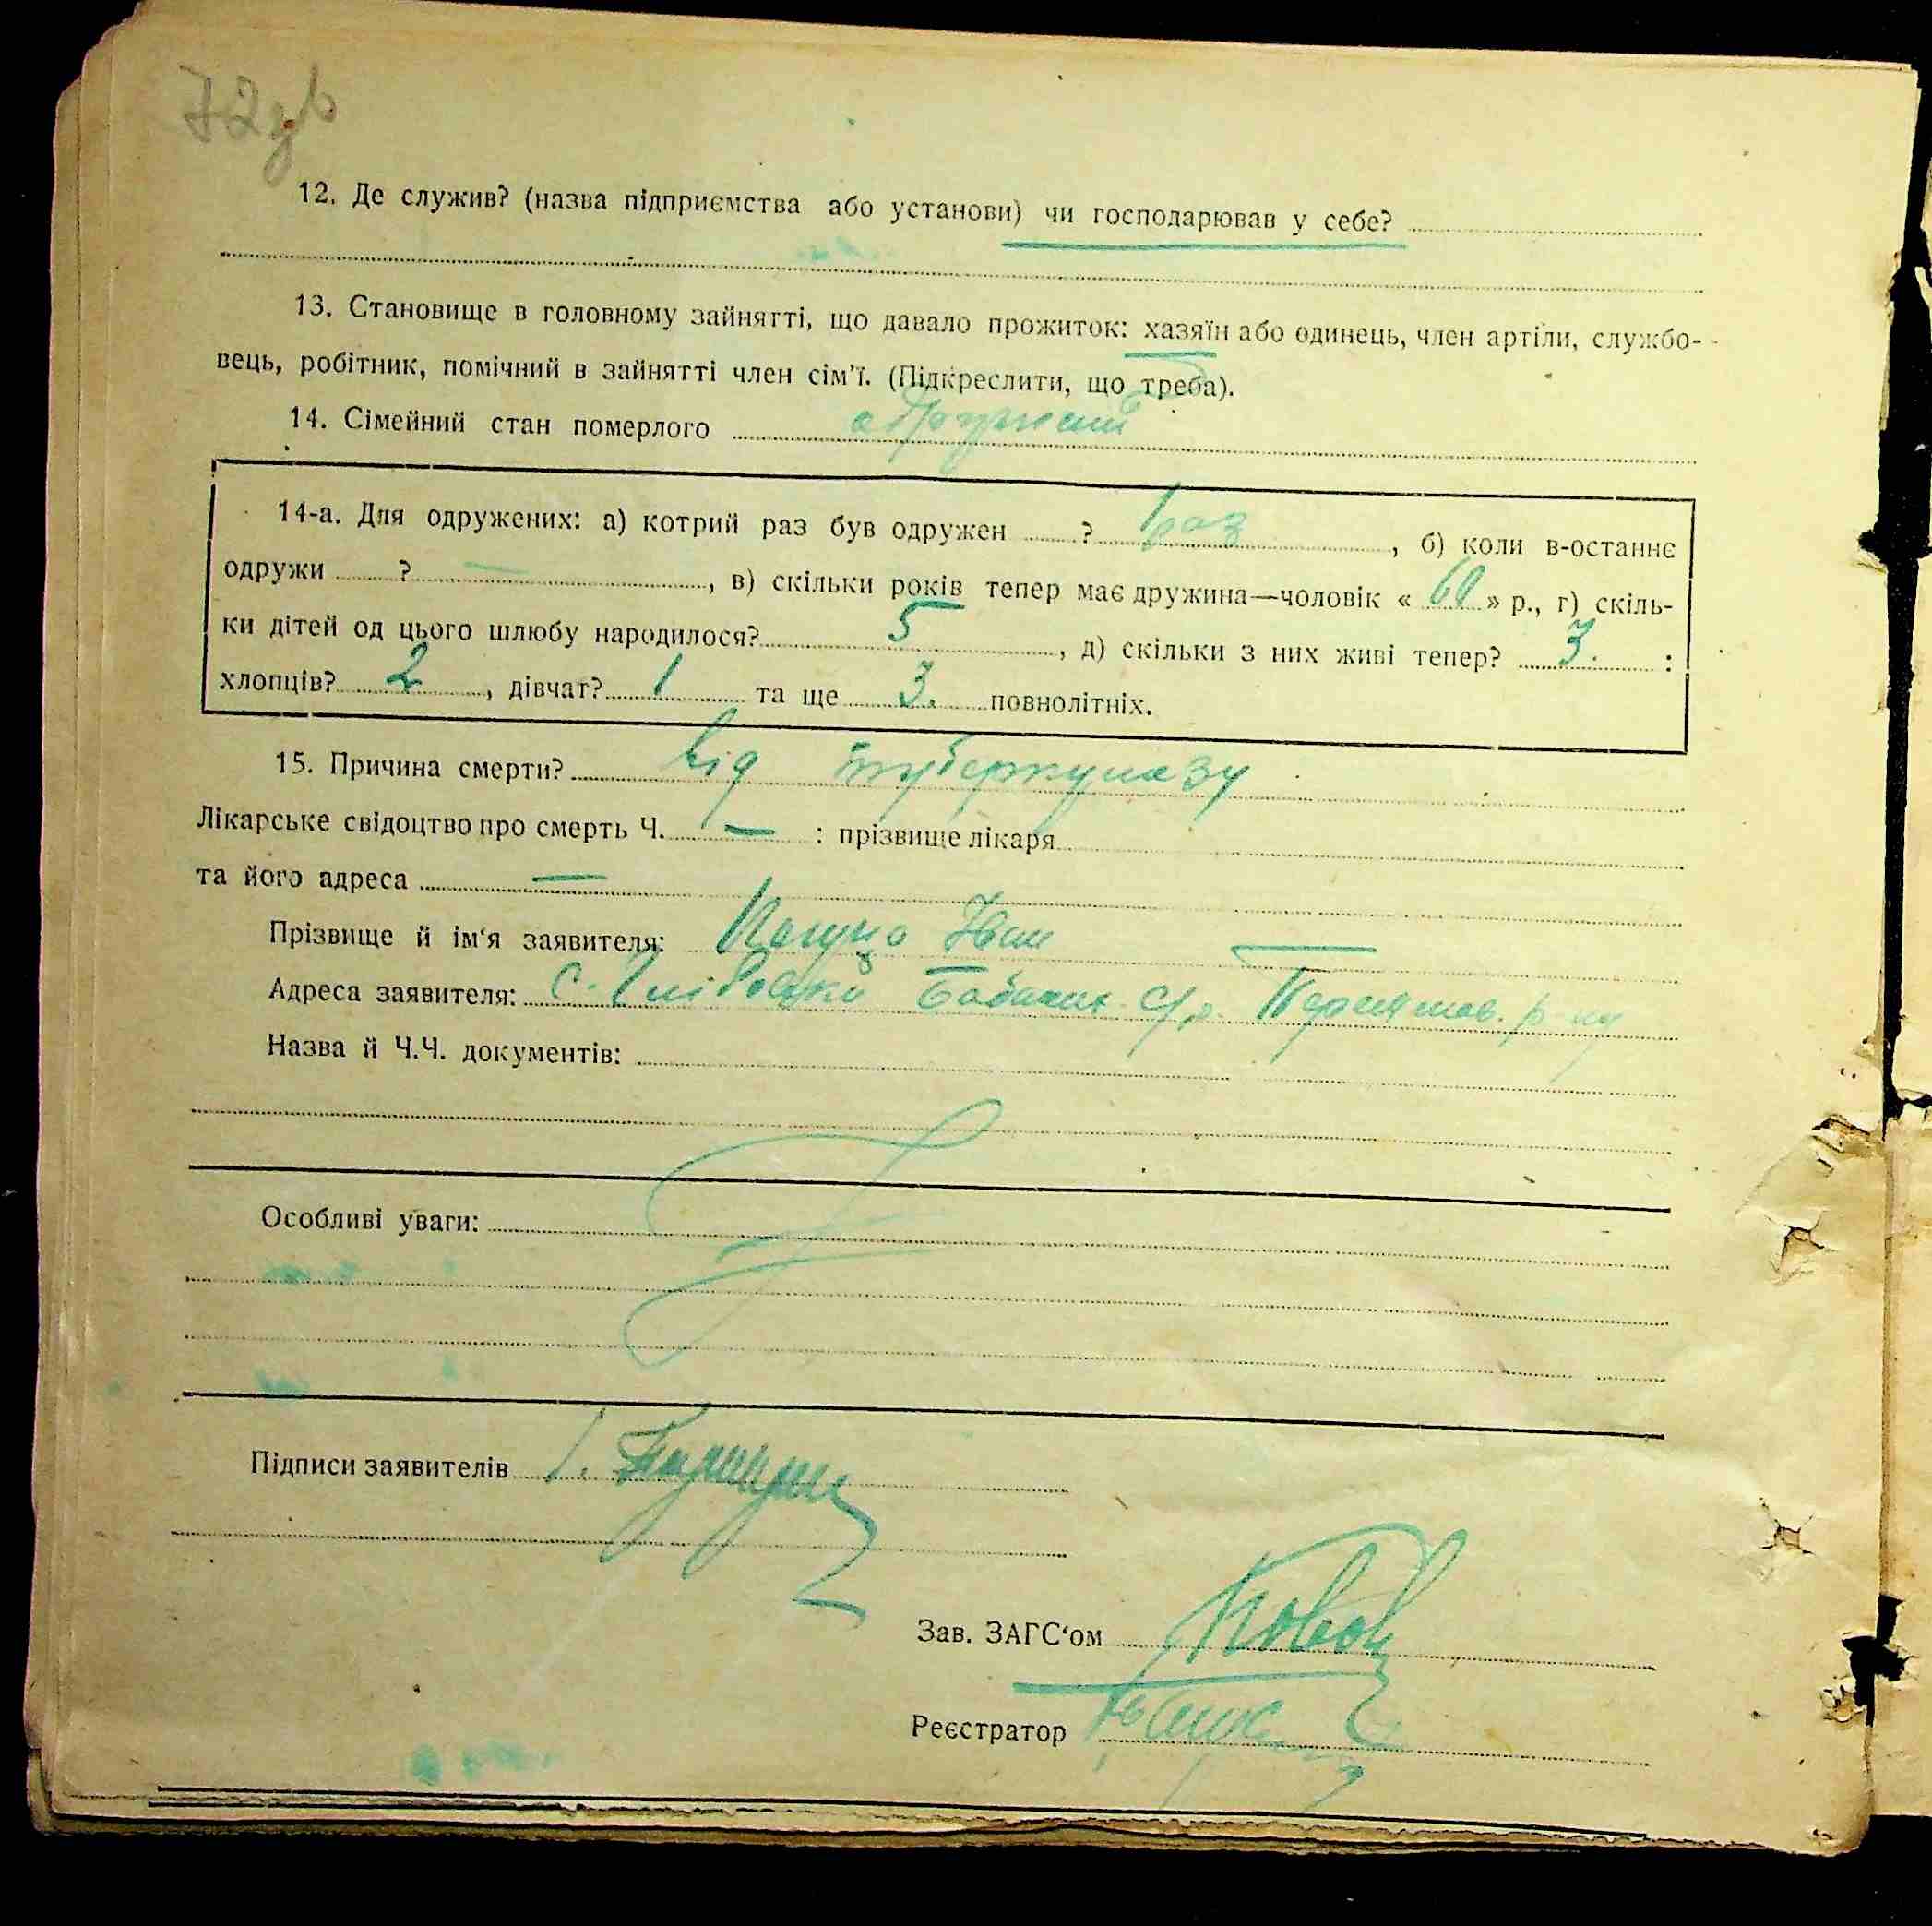 72
12. Де служив? (назва підприємства або установи) чи господарював у себе?
13. Становище в головному зайнятті, що давало прожиток: хазяїн або одинець, член артіли, службо-
вець, робітник, помічний в зайнятті член сім'ї. (Підкреслити, що треба).
14. Сімейний стан померлого одружений
14-а. Для одружених: а) котрий раз був одружен ? 1 раз, б) коли в-останнє
одружи ? —, в) скільки років тепер має дружина—чоловік « 60 » р., г) скіль-
ки дітей од цього шлюбу народилося? 5, д) скільки з них живі тепер? 3. :
хлопців? 2, дівчат? 1 та ще 3. повнолітніх.
15. Причина смерти? від туберкульозу
Лікарське свідоцтво про смерть Ч. — : прізвище лікаря
та його адреса —
Прізвище й ім'я заявителя: Іван
Адреса заявителя: с.
Назва й Ч.Ч. документів:
Особливі уваги:
Підписи заявителів
Зав. ЗАГС'ом
Реєстратор